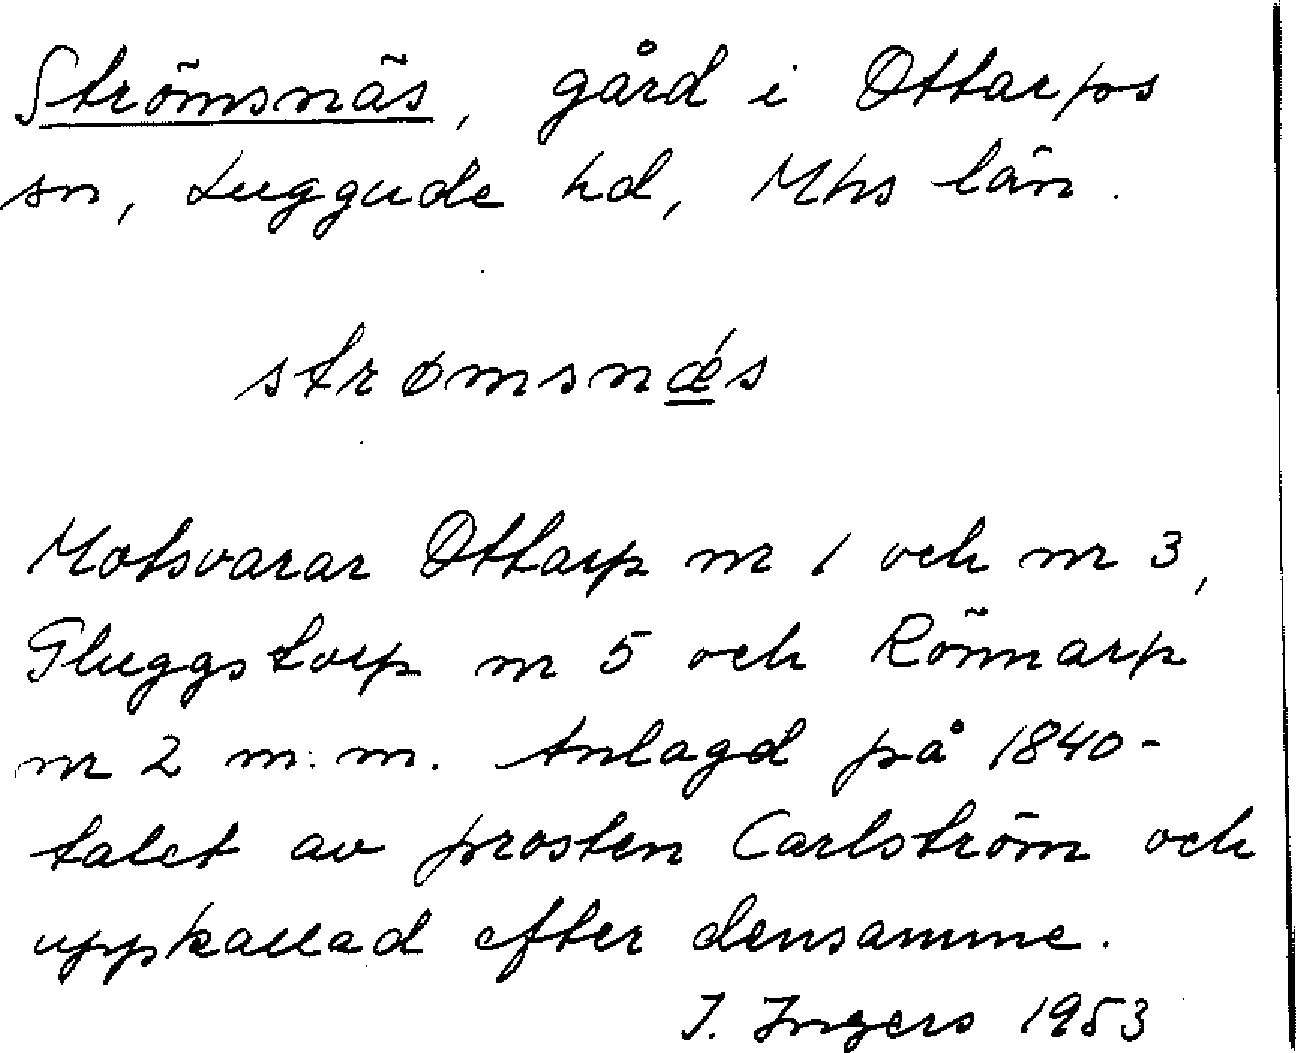 Strömsnäs, gård i Ottarps
sn, Luggude hd, Mhs län.
strømsnǽs
Motsvarar Ottarp nr 1 och nr 3,
Gluggstorp nr 5 och Rönnarp
nr 2 m. m. Anlagd på 1840-
talet av prosten Carlström och
uppkallad efter densamme.
I. Ingers 1953